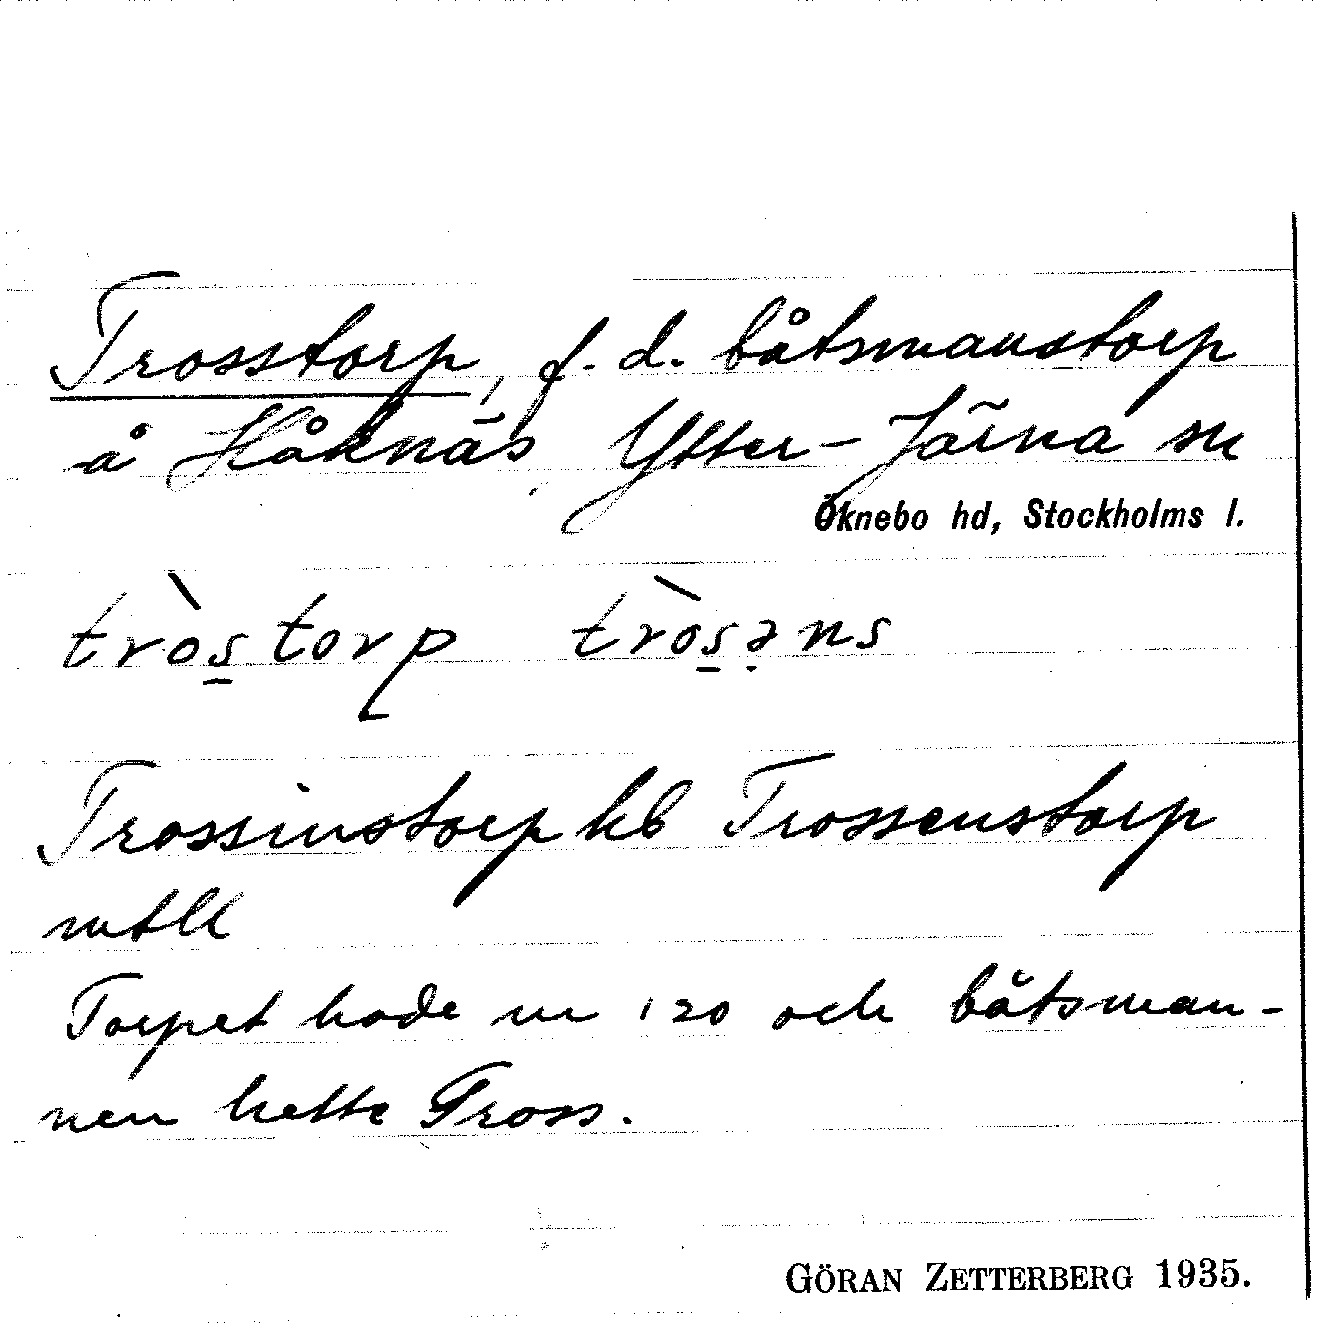 Trosstorp, f. d. båtsmanstorp
å Håknäs Ytter-Järna sn
Öknebo hd, Stockholms l.
tròstorp tròsəns
Trossinstorp kb Trossenstorp
mtll
Torpet hade nr 120 och båtsman-
nen hette Tross.
GÖRAN ZETTERBERG 1935.